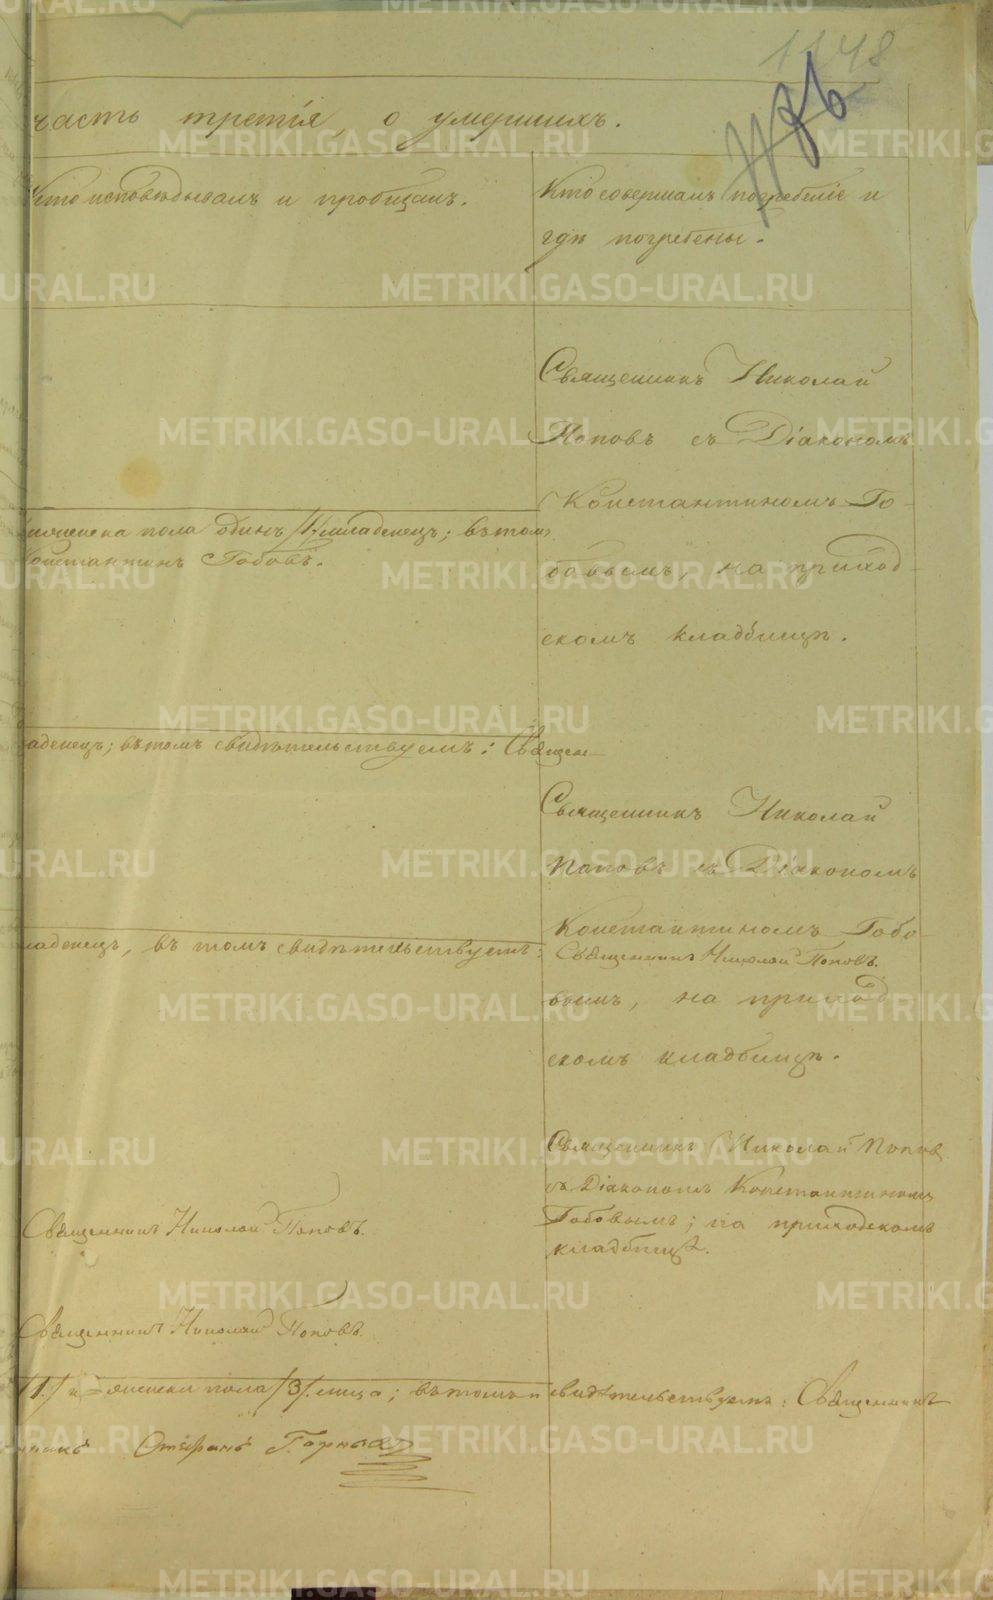 1148
1176
часть третія, о умершихъ.
Кто исповѣдывалъ и пробщалъ.
Кто совершалъ погребеніе и
гдѣ погребены.
Священникъ Николай
Поповъ съ Діакономъ
Константиномъ Го-
бовымъ, на приход-
скомъ кладбищѣ.
женска пола одинъ /1/ младенецъ; въ томъ
Константинъ Гобовъ.
аденецъ; въ томъ свидѣтельствуемъ: Священ-
Священникъ Николай
Поповъ съ Діакономъ
Константиномъ Гобо-
вымъ, на приход-
скомъ кладбищѣ.
ладенецъ, въ томъ свидѣтельствуемъ: Священникъ Николай Поповъ.
Священникъ Николай Поповъ
съ Діакономъ Константиномъ
Гобовымъ; на приходскомъ
кладбищѣ.
Священникъ Николай Поповъ.
Священникъ Николай Поповъ.
/1/ и женска пола /3/ лица; въ томъ и свидѣтельствуемъ: Священникъ
Стефанъ
METRIKI.GASO-URAL.RU